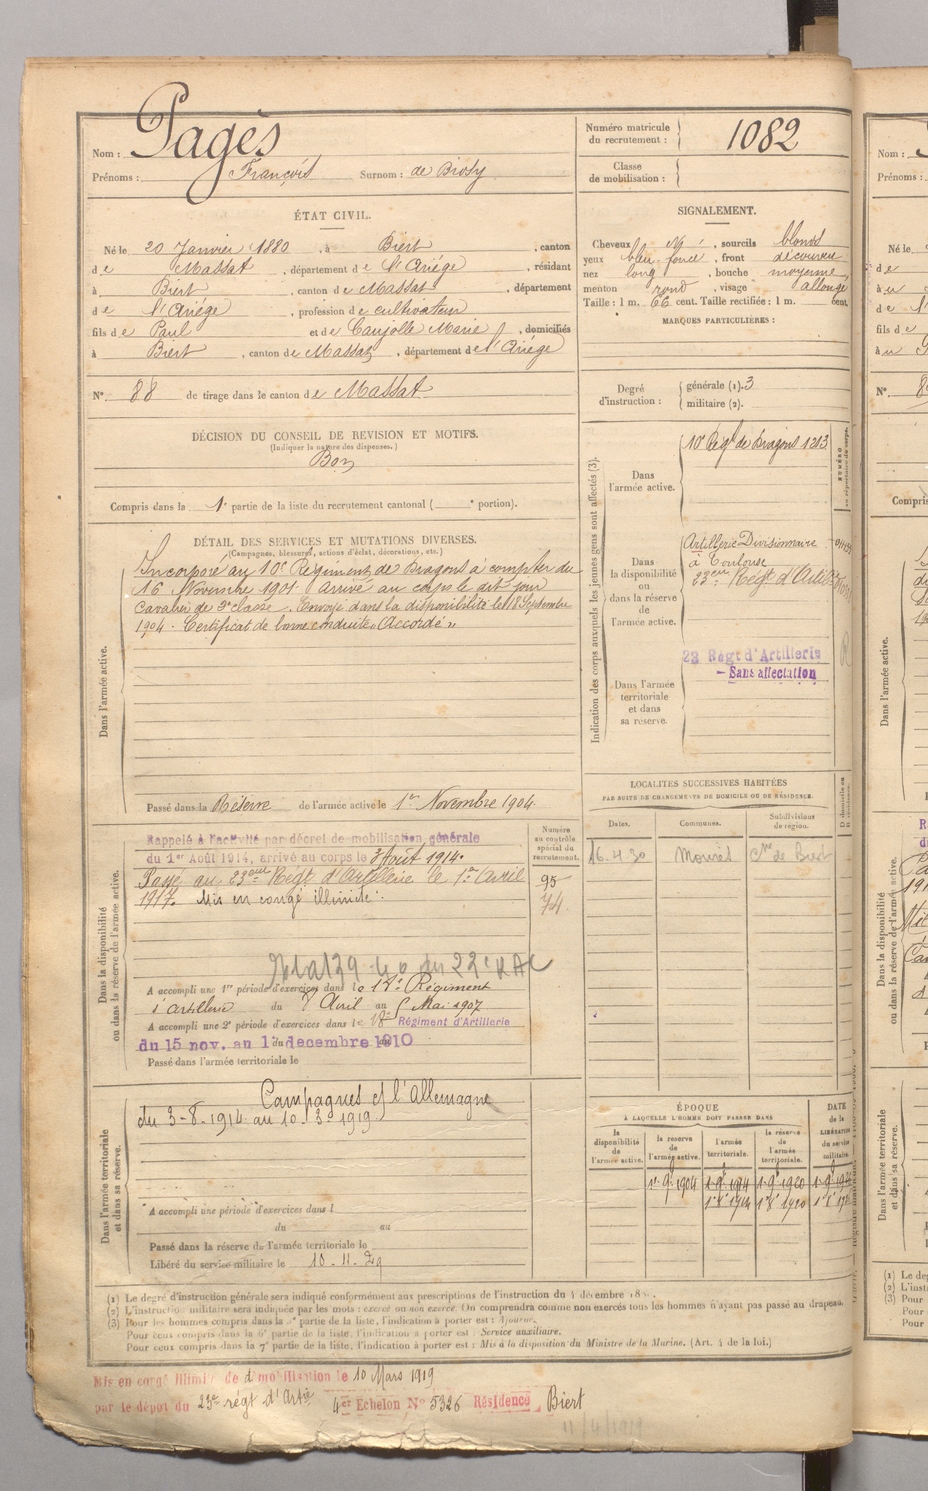 Nom : Pagès
Prénoms : François Surnom : de Brosy
Numéro matricule du recrutement : 1082
Classe de mobilisation :
ÉTAT CIVIL.
Né le 20 Janvier 1880, à Biert, canton
de Massat, département de l'Ariège, résidant
à Biert, canton de Massat, département
de l'Ariège, profession de cultivateur
fils de Paul et de Caujolle Marie, domiciliés
à Biert, canton de Massat, département de l'Ariège
N° 88 de tirage dans le canton de Massat
SIGNALEMENT.
Cheveux , sourcils blonds
yeux bleu foncé, front découvert
nez long, bouche moyenne
menton rond, visage allongé
Taille : 1 m. 66 cent. Taille rectifiée : 1 m. cent.
MARQUES PARTICULIÈRES :
Degré d'instruction : générale (1). 3
militaire (2).
DÉCISION DU CONSEIL DE REVISION ET MOTIFS.
(Indiquer la nature des dispenses.)
Bon
Compris dans la 1e partie de la liste du recrutement cantonal ( e portion).
DÉTAIL DES SERVICES ET MUTATIONS DIVERSES.
(Campagnes, blessures, actions d'éclat, décorations, etc.)
Dans l'armée active.
Incorporé au 10e Régiment de Dragons à compter du
16 Novembre 1901. arrivé au corps le dit jour
cavalier de 2e classe. Envoyé dans la disponibilité le 18 Septembre
1904. Certificat de bonne conduite "Accordé"
Passé dans la Réserve de l'armée active le 1er Novembre 1904.
Indication des corps auxquels les jeunes gens sont affectés (3).
Dans l'armée active.
10e Régt de Dragons 1213
Dans la disponibilité ou dans la réserve de l'armée active.
Artillerie Divisionnaire
à Toulouse
23eme Régt d'Artillerie
23 Régt d'Artillerie
— Sans affectation
Dans l'armée territoriale et dans sa réserve.
LOCALITÉS SUCCESSIVES HABITÉES
PAR SUITE DE CHANGEMENTS DE DOMICILE OU DE RÉSIDENCE.
Dates. Communes. Subdivisions de région.
16.4.30 Cne de Biert
Dans la disponibilité ou dans la réserve de l'armée active.
Numéro au contrôle spécial du recrutement.
Rappelé à l'activité par décret de mobilisation générale
du 1er Août 1914, arrivé au corps le 3 Août 1914.
Passé au 23eme Régt d'Artillerie le 1er Avril 95
1917. Mis en congé illimité. 74
A accompli une 1re période d'exercices dans le 18e Régiment
d'artillerie du 8 Avril au 5 Mai 1907
A accompli une 2e période d'exercices dans le 18e Régiment d'Artillerie
du 15 nov. au 1 decembre 1910
Passé dans l'armée territoriale le
Dans l'armée territoriale et dans sa réserve.
Campagnes ct l'Allemagne
du 3-8-1914 au 10.3.1919
A accompli une période d'exercices dans l
du au
Passé dans la réserve de l'armée territoriale le
Libéré du service militaire le 10.11.29
ÉPOQUE
À LAQUELLE L'HOMME DOIT PASSER DANS
DATE de la LIBÉRATION du service militaire.
la disponibilité de l'armée active. la réserve de l'armée active. l'armée territoriale. la réserve de l'armée territoriale.
1er 9e 1904 1er 9e 1914 1er 9e 1920
(1) Le degré d'instruction générale sera indiqué conformément aux prescriptions de l'instruction du 4 décembre
(2) L'instruction militaire sera indiquée par les mots : exercé ou non exercé. On comprendra comme non exercés tous les hommes n'ayant pas passé au drapeau.
(3) Pour les hommes compris dans la 5e partie de la liste, l'indication à porter est : Ajourné.
Pour ceux compris dans la 6e partie de la liste, l'indication à porter est : Service auxiliaire.
Pour ceux compris dans la 7e partie de la liste, l'indication à porter est : Mis à la disposition du Ministre de la Marine. (Art. 4 de la loi.)
Mis en congé illimité de démobilisation le 10 Mars 1919
par le dépôt du 23e régt d'Artie 4er Echelon N° 5326 Résidence Biert
11/4/1919